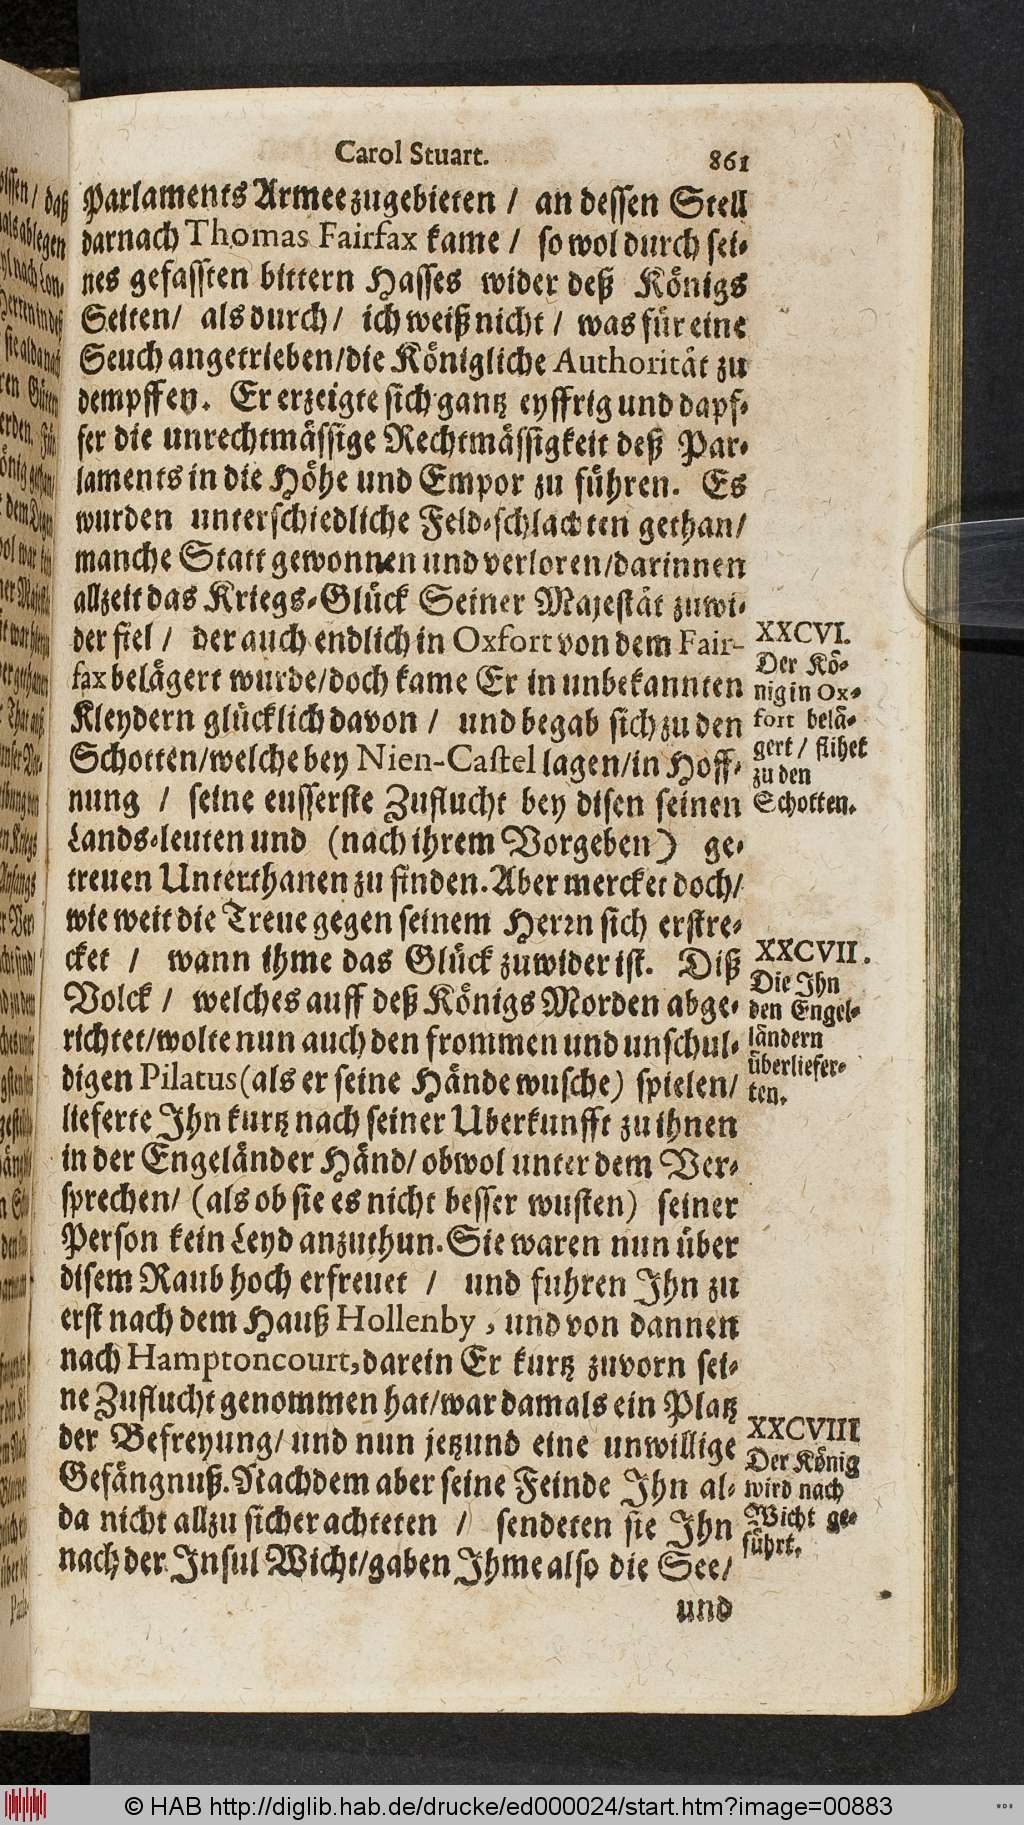 Carol Stuart. 861
Parlaments Armee zugebieten / an dessen Stell
darnach Thomas Fairfax kame / so wol durch sei-
nes gefassten bittern Hasses wider deß Königs
Seiten / als durch / ich weiß nicht / was für eine
Seuch angetrieben / die Königliche Authorität zu
dempffen. Er erzeigte sich gantz eyffrig und dapf-
fer die unrechtmässige Rechtmässigkeit deß Par-
laments in die Höhe und Empor zu führen. Es
wurden unterschiedliche Feld-schlachten gethan /
manche Statt gewonnen und verloren / darinnen
allzeit das Kriegs-Glück Seiner Majestät zuwi-
der fiel / der auch endlich in Oxfort von dem Fair-
fax belägert wurde / doch kame Er in unbekannten
Kleydern glücklich davon / und begab sich zu den
Schotten / welche bey Nien-Castel lagen / in Hoff-
nung / seine eusserste Zuflucht bey disen seinen
Lands-leuten und (nach ihrem Vorgeben) ge-
treuen Unterthanen zu finden. Aber mercket doch /
wie weit die Treue gegen seinem Herrn sich erstre-
cket / wann ihme das Glück zuwider ist. Diß
Volck / welches auff deß Königs Morden abge-
richtet / wolte nun auch den frommen und unschul-
digen Pilatus (als er seine Hände wusche) spielen /
lieferte Ihn kurtz nach seiner Uberkunfft zu ihnen
in der Engeländer Händ / obwol unter dem Ver-
sprechen / (als ob sie es nicht besser wusten) seiner
Person kein Leyd anzuthun. Sie waren nun über
disem Raub hoch erfreuet / und fuhren Ihn zu
erst nach dem Hauß Hollenby, und von dannen
nach Hamptoncourt, darein Er kurtz zuvorn sei-
ne Zuflucht genommen hat / war damals ein Platz
der Befreyung / und nun jetzund eine unwillige
Gefängnuß. Nachdem aber seine Feinde Ihn al-
da nicht allzu sicher achteten / sendeten sie Ihn
nach der Insul Wicht / gaben Ihme also die See /
und
XXCVI.
Der Kö-
nig in Ox-
fort belä-
gert / flihet
zu den
Schotten.
XXCVII.
Die Ihn
den Engel-
ländern
überliefer-
ten.
XXCVIII
Der König
wird nach
Wicht ge-
führt.
© HAB http://diglib.hab.de/drucke/ed000024/start.htm?image=00883